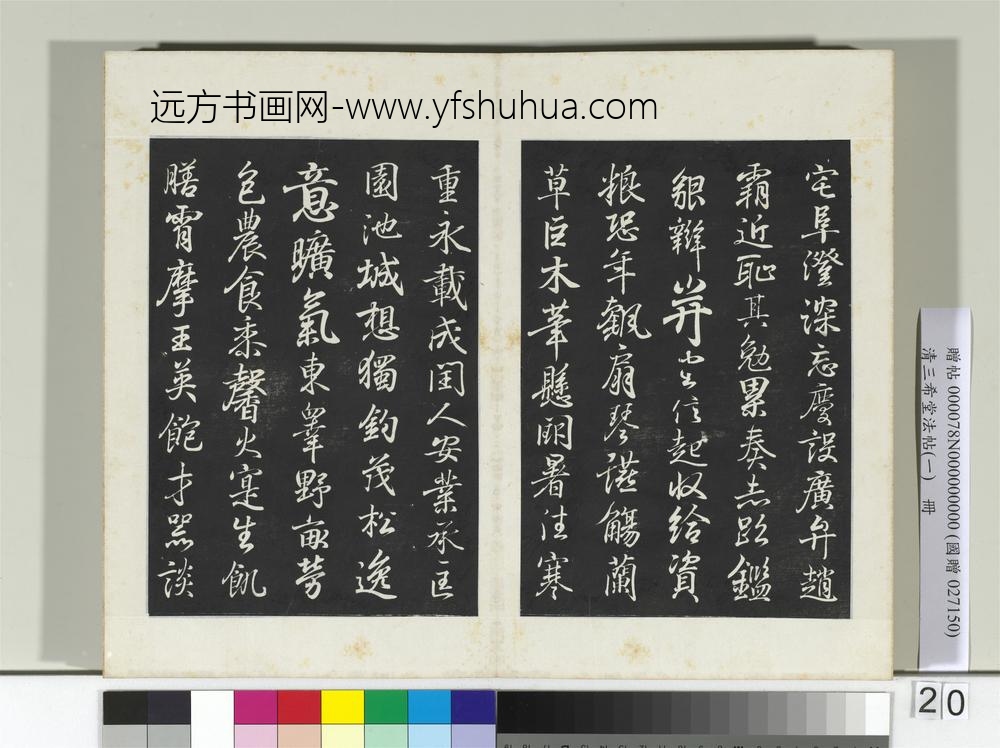 远方书画网-www.yfshuhua.com
宅阜澄深忘慶設廣弁趙
霸近恥其勉累奏鑑
貌辯信起收給資
粮恐年翫扇琴謹觴蘭
草巨木筆懸明暑往寒
重永載成閏人安業承匡
園池城想獨釣茂松逸
意曠氣東野畝勞
包農食黍馨火寔生飢
膳霄摩王英飽才器談
贈帖 000078N000000000 (國贈 027150)
清三希堂法帖(一) 冊
20